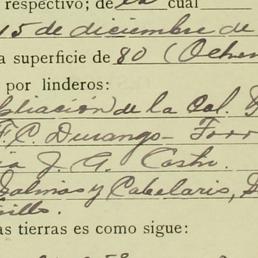 respectivo; de la cual
15 de diciembre de
a superficie de 80 (Ochen
por linderos:
pliación de la Col.
F.C. Durango- Torr
J. G. Castro.
Salinas y Cabelaris,
as tierras es como sigue: